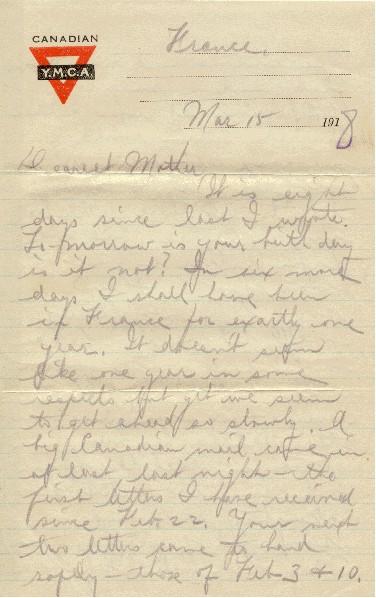 CANADIAN
Y.M.C.A.
France.
Mar 15 1918
Dearest Mother
It is eight
days since last I wrote.
To-morrow is your birthday
is it not? In six more
days I shall have been
in France for exactly one
year. It doesn't seem
like one year in some
respects but yet we seem
to get ahead so slowly. A
big Canadian mail came in
at last last night - the
first letters I have received
since Feb 22. Your next
two letters came to hand
safely - those of Feb 3 & 10.